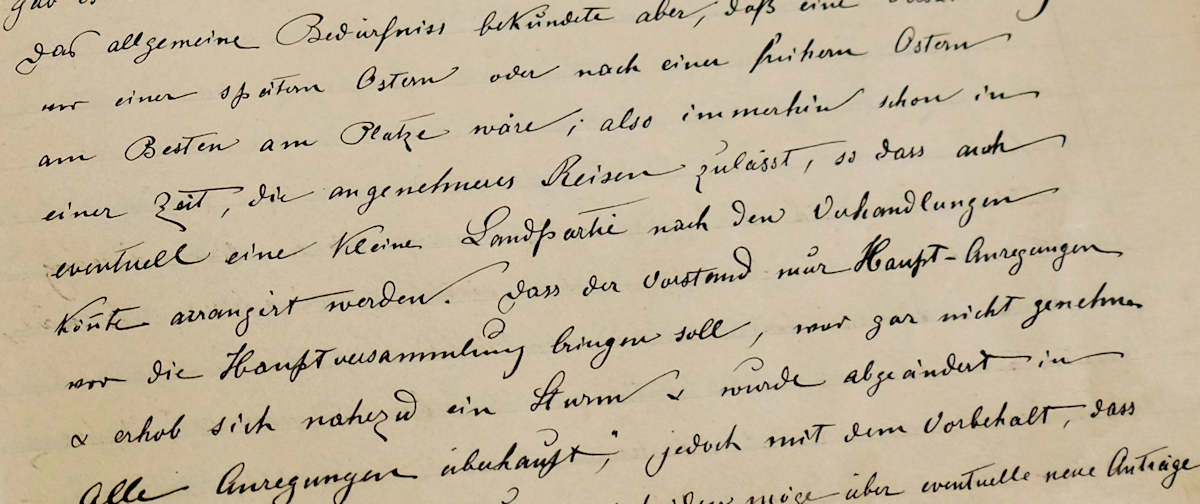 das allgemeine Bedürfniss bekundete aber, daß eine
vor einer spätern Ostern oder nach einer frühern Ostern
am Besten am Platze wäre; also immerhin schon in
einer Zeit, die angenehmeres Reisen zulässt, so dass auch
eventuell eine kleine Landpartie nach den Verhandlungen
kön̄te arrangirt werden. Dass der Vorstand nur Haupt-Anregungen
vor die Hauptversammlung bringen soll, war gar nicht genehm
& erhob sich nahezu ein Sturm & wurde abgeändert in
alle Anregungen überhaupt," jedoch mit dem Vorbehalt, dass
möge über eventuelle neue Anträge